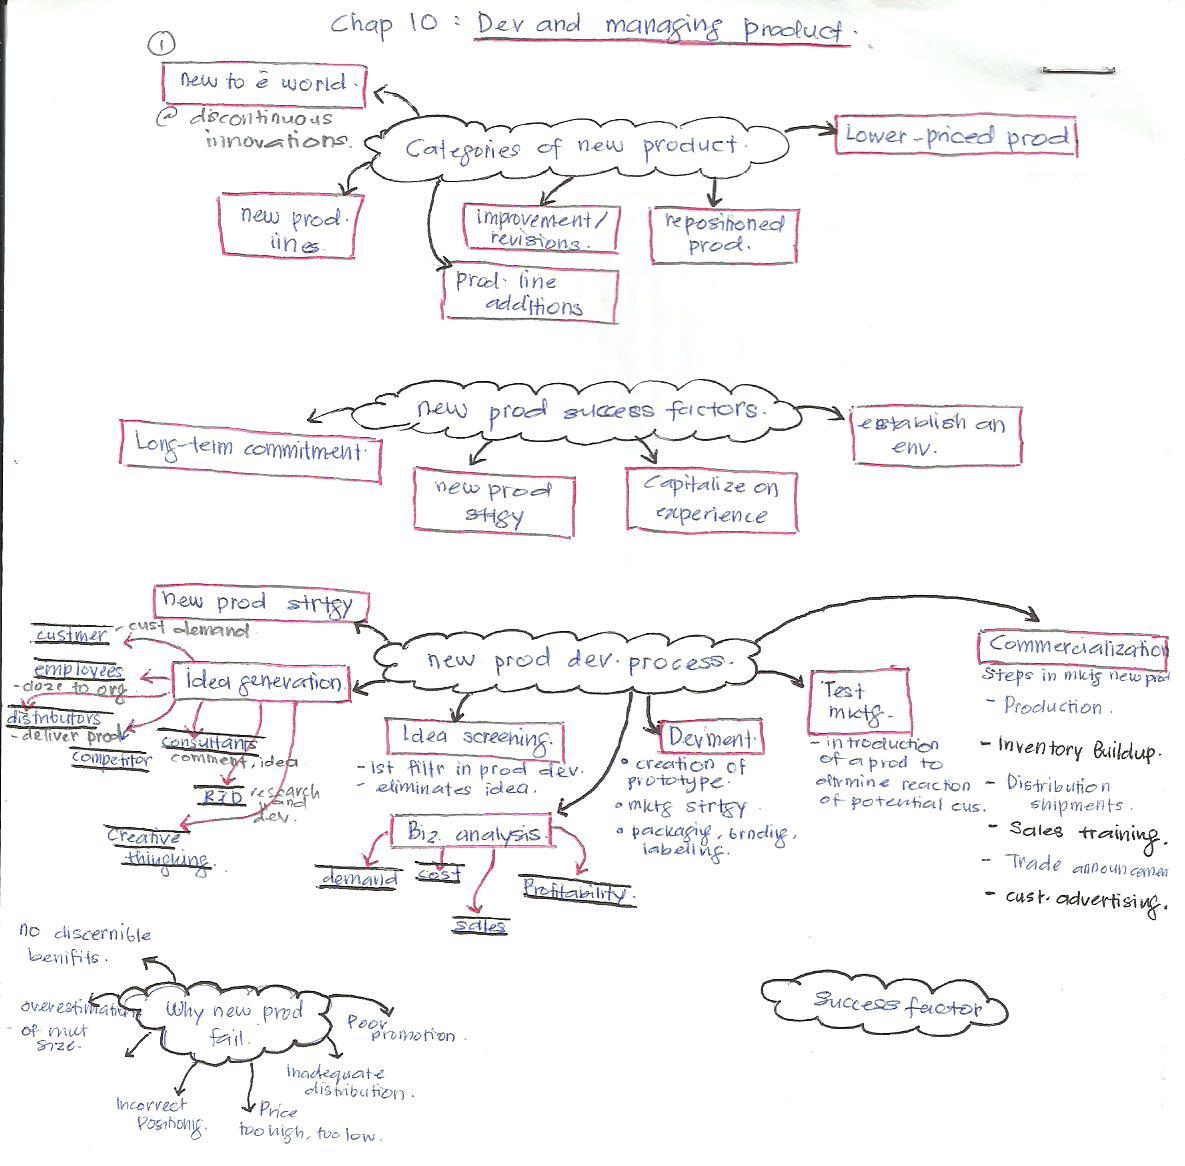 Chap 10 : Dev and managing product.
1
new to ē world.
@ discontinuous
innovations.
Categories of new product.
Lower-priced prod
new prod.
lines
improvement/
revisions.
repositioned
prod.
prod. line
additions
new prod success factors.
Long-term commitment
new prod
strgy
Capitalize on
experience
establish an
env.
new prod strtgy
custmer - cust demand
employees
- cloze to org
distributors
- deliver prod
competitor
idea generation.
consultants
comment, idea
R&D research
and
dev.
Creative
thingking.
new prod dev. process.
Idea screening.
- 1st filtr in prod dev.
- eliminates idea.
Biz analysis
demand
cost
sales
Profitability.
Devment.
• creation of
prototype.
• mktg strtgy.
• packagig, brndig,
labeling.
Test
mktg.
- introduction
of a prod to
dtrmine reaction
of potential cus.
Commercialization
Steps in mktg new prod
- Production.
- Inventory Buildup.
- Distribution
shipments.
- Sales training.
- Trade announcemen
- cust. advertising.
no discernible
benifits.
overestimation
- of mkt
size.
Why new prod
fail.
Poor
promotion.
Inadequate
distribution.
Incorrect
Positionig.
Price
too high, too low.
Success factor